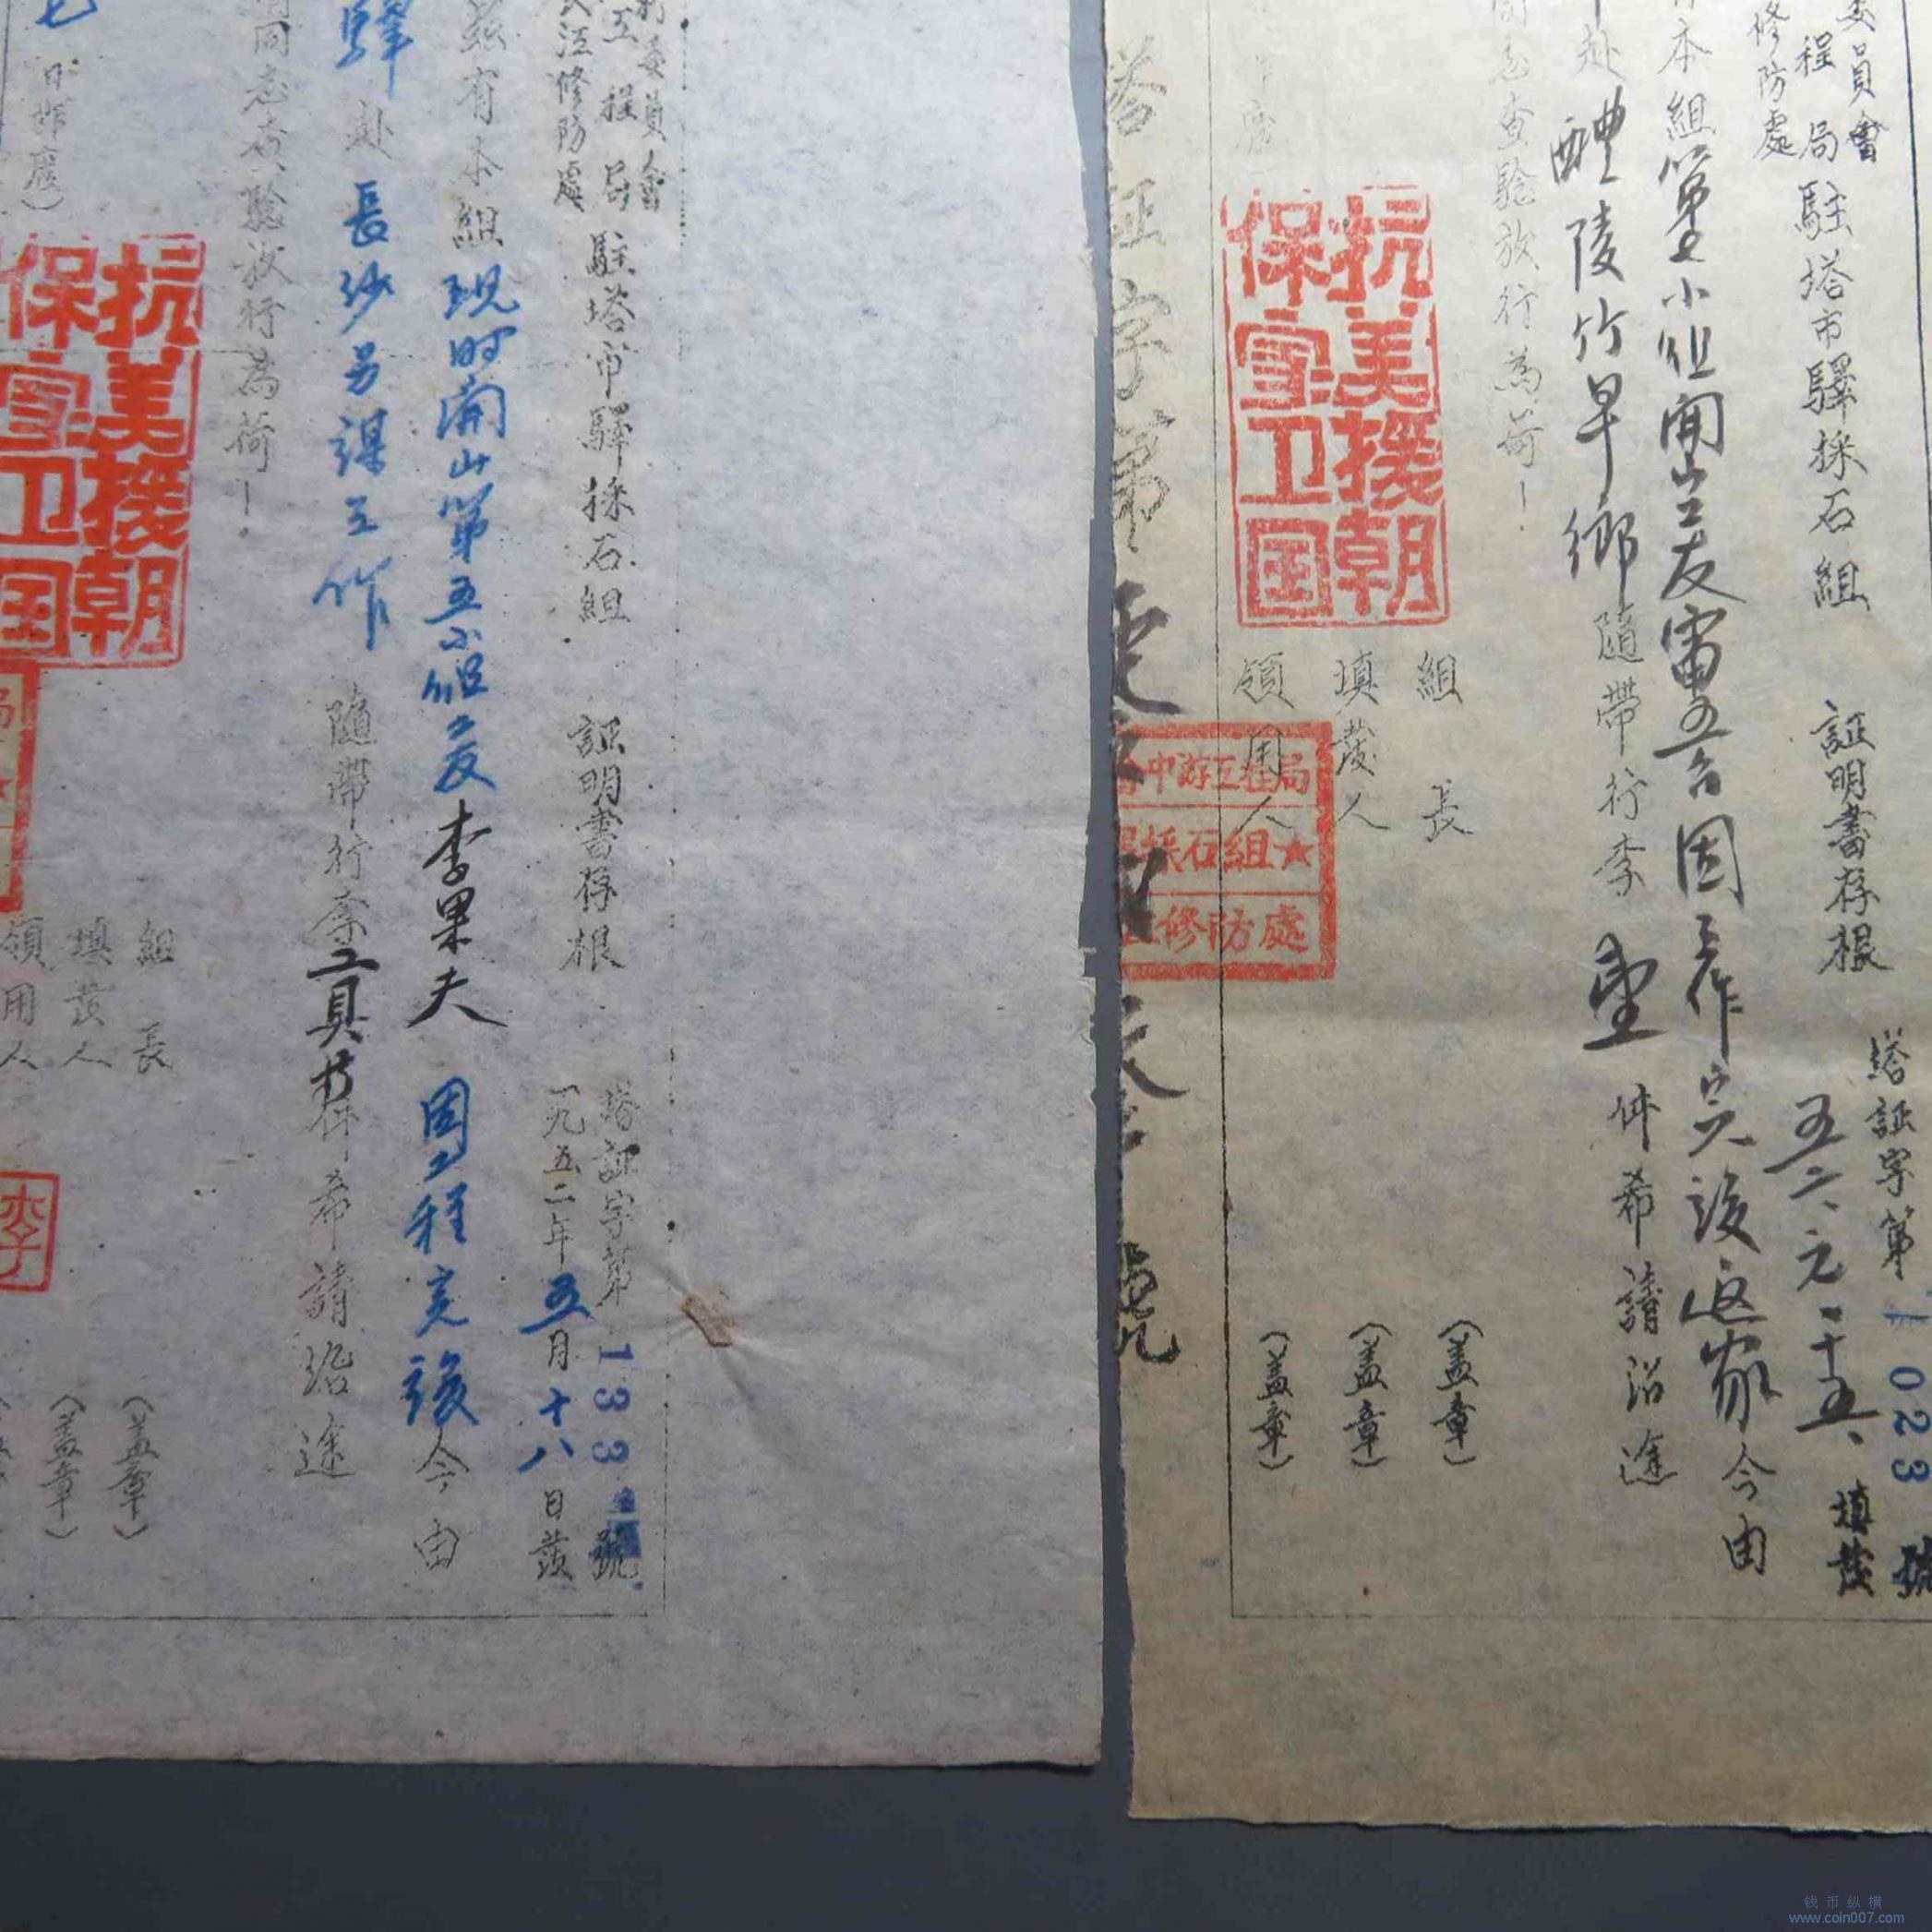 委員會
程局
修防處
駐塔市驛採石組 証明書存根
塔証字第1023號
五二、元、二十五、填發
本組第七小组開山工友雷五吉因工作完後返家今由
赴醴陵竹早鄉隨帶行李 件希請沿途
同志查驗放行為荷！
組長（盖章）
填發人（盖章）
領用人（盖章）
抗美援朝
保家卫国
中游工程局
採石組★
修防處
塔証字第
號
委員會
工程局
江修防處
駐塔市驛採石組 証明書存根
塔証字第133號
一九五二年五月十八日發
茲有本組现时開山第五小组工友李果夫 因工程完後今由
驛赴長沙另謀工作 隨帶行李工具 件希請沿途
同志查驗放行為荷！
七日作廢）
組長（盖章）
填發人（盖章）
領用人
抗美援朝
保家卫国
局
★
李
钱币纵横
www.coin007.com